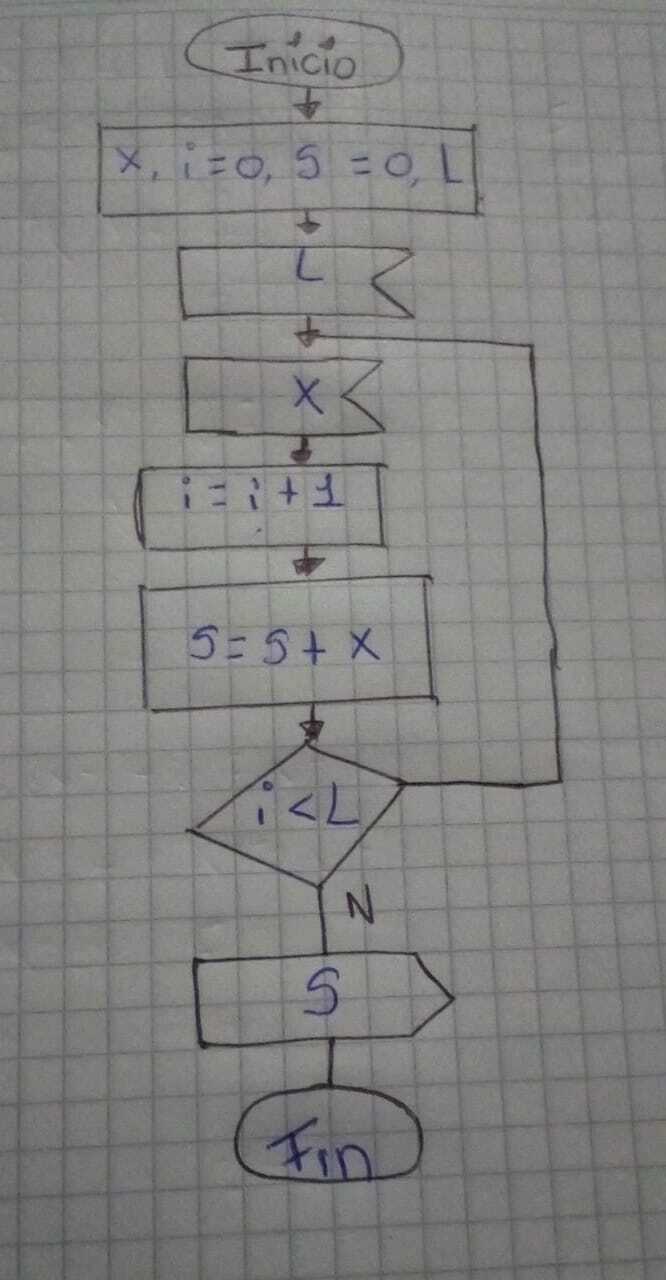 Inicio
X, i=0, S=0, L
L
X
i=i+1
S=S+X
i<L
N
S
Fin